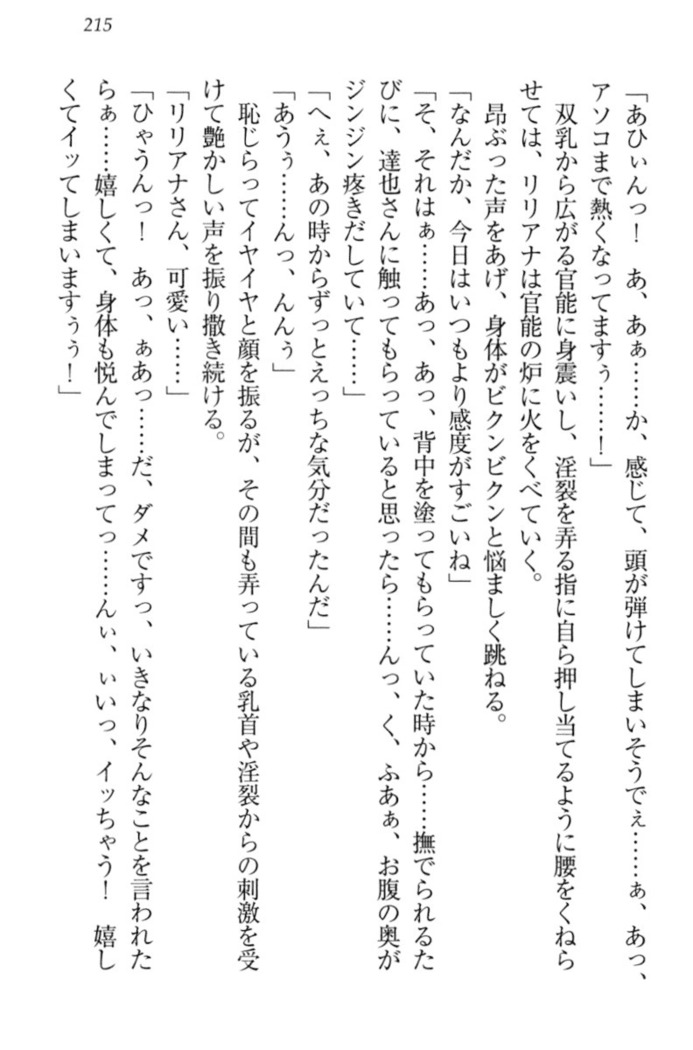 215
「あひぃんっ！　あ、あぁ……か、感じて、頭が弾けてしまいそうでぇ……ぁ、あっ、
アソコまで熱くなってますぅ……！」
　双乳から広がる官能に身震いし、淫裂を弄る指に自ら押し当てるように腰をくねら
せては、リリアナは官能の炉に火をくべていく。
　昂ぶった声をあげ、身体がビクンビクンと悩ましく跳ねる。
「なんだか、今日はいつもより感度がすごいね」
「そ、それはぁ……あっ、あっ、背中を塗ってもらっていた時から……撫でられるた
びに、達也さんに触ってもらっていると思ったら……んっ、く、ふあぁ、お腹の奥が
ジンジン疼きだしていて……」
「へぇ、あの時からずっとえっちな気分だったんだ」
「あうぅ……んっ、んんぅ」
　恥じらってイヤイヤと顔を振るが、その間も弄っている乳首や淫裂からの刺激を受
けて艶かしい声を振り撒き続ける。
「リリアナさん、可愛い……」
「ひゃうんっ！　あっ、ぁあっ……だ、ダメですっ、いきなりそんなことを言われた
らぁ……嬉しくて、身体も悦んでしまってっ……んぃ、ぃいっ、イッちゃう！　嬉し
くてイッてしまいますぅぅ！」